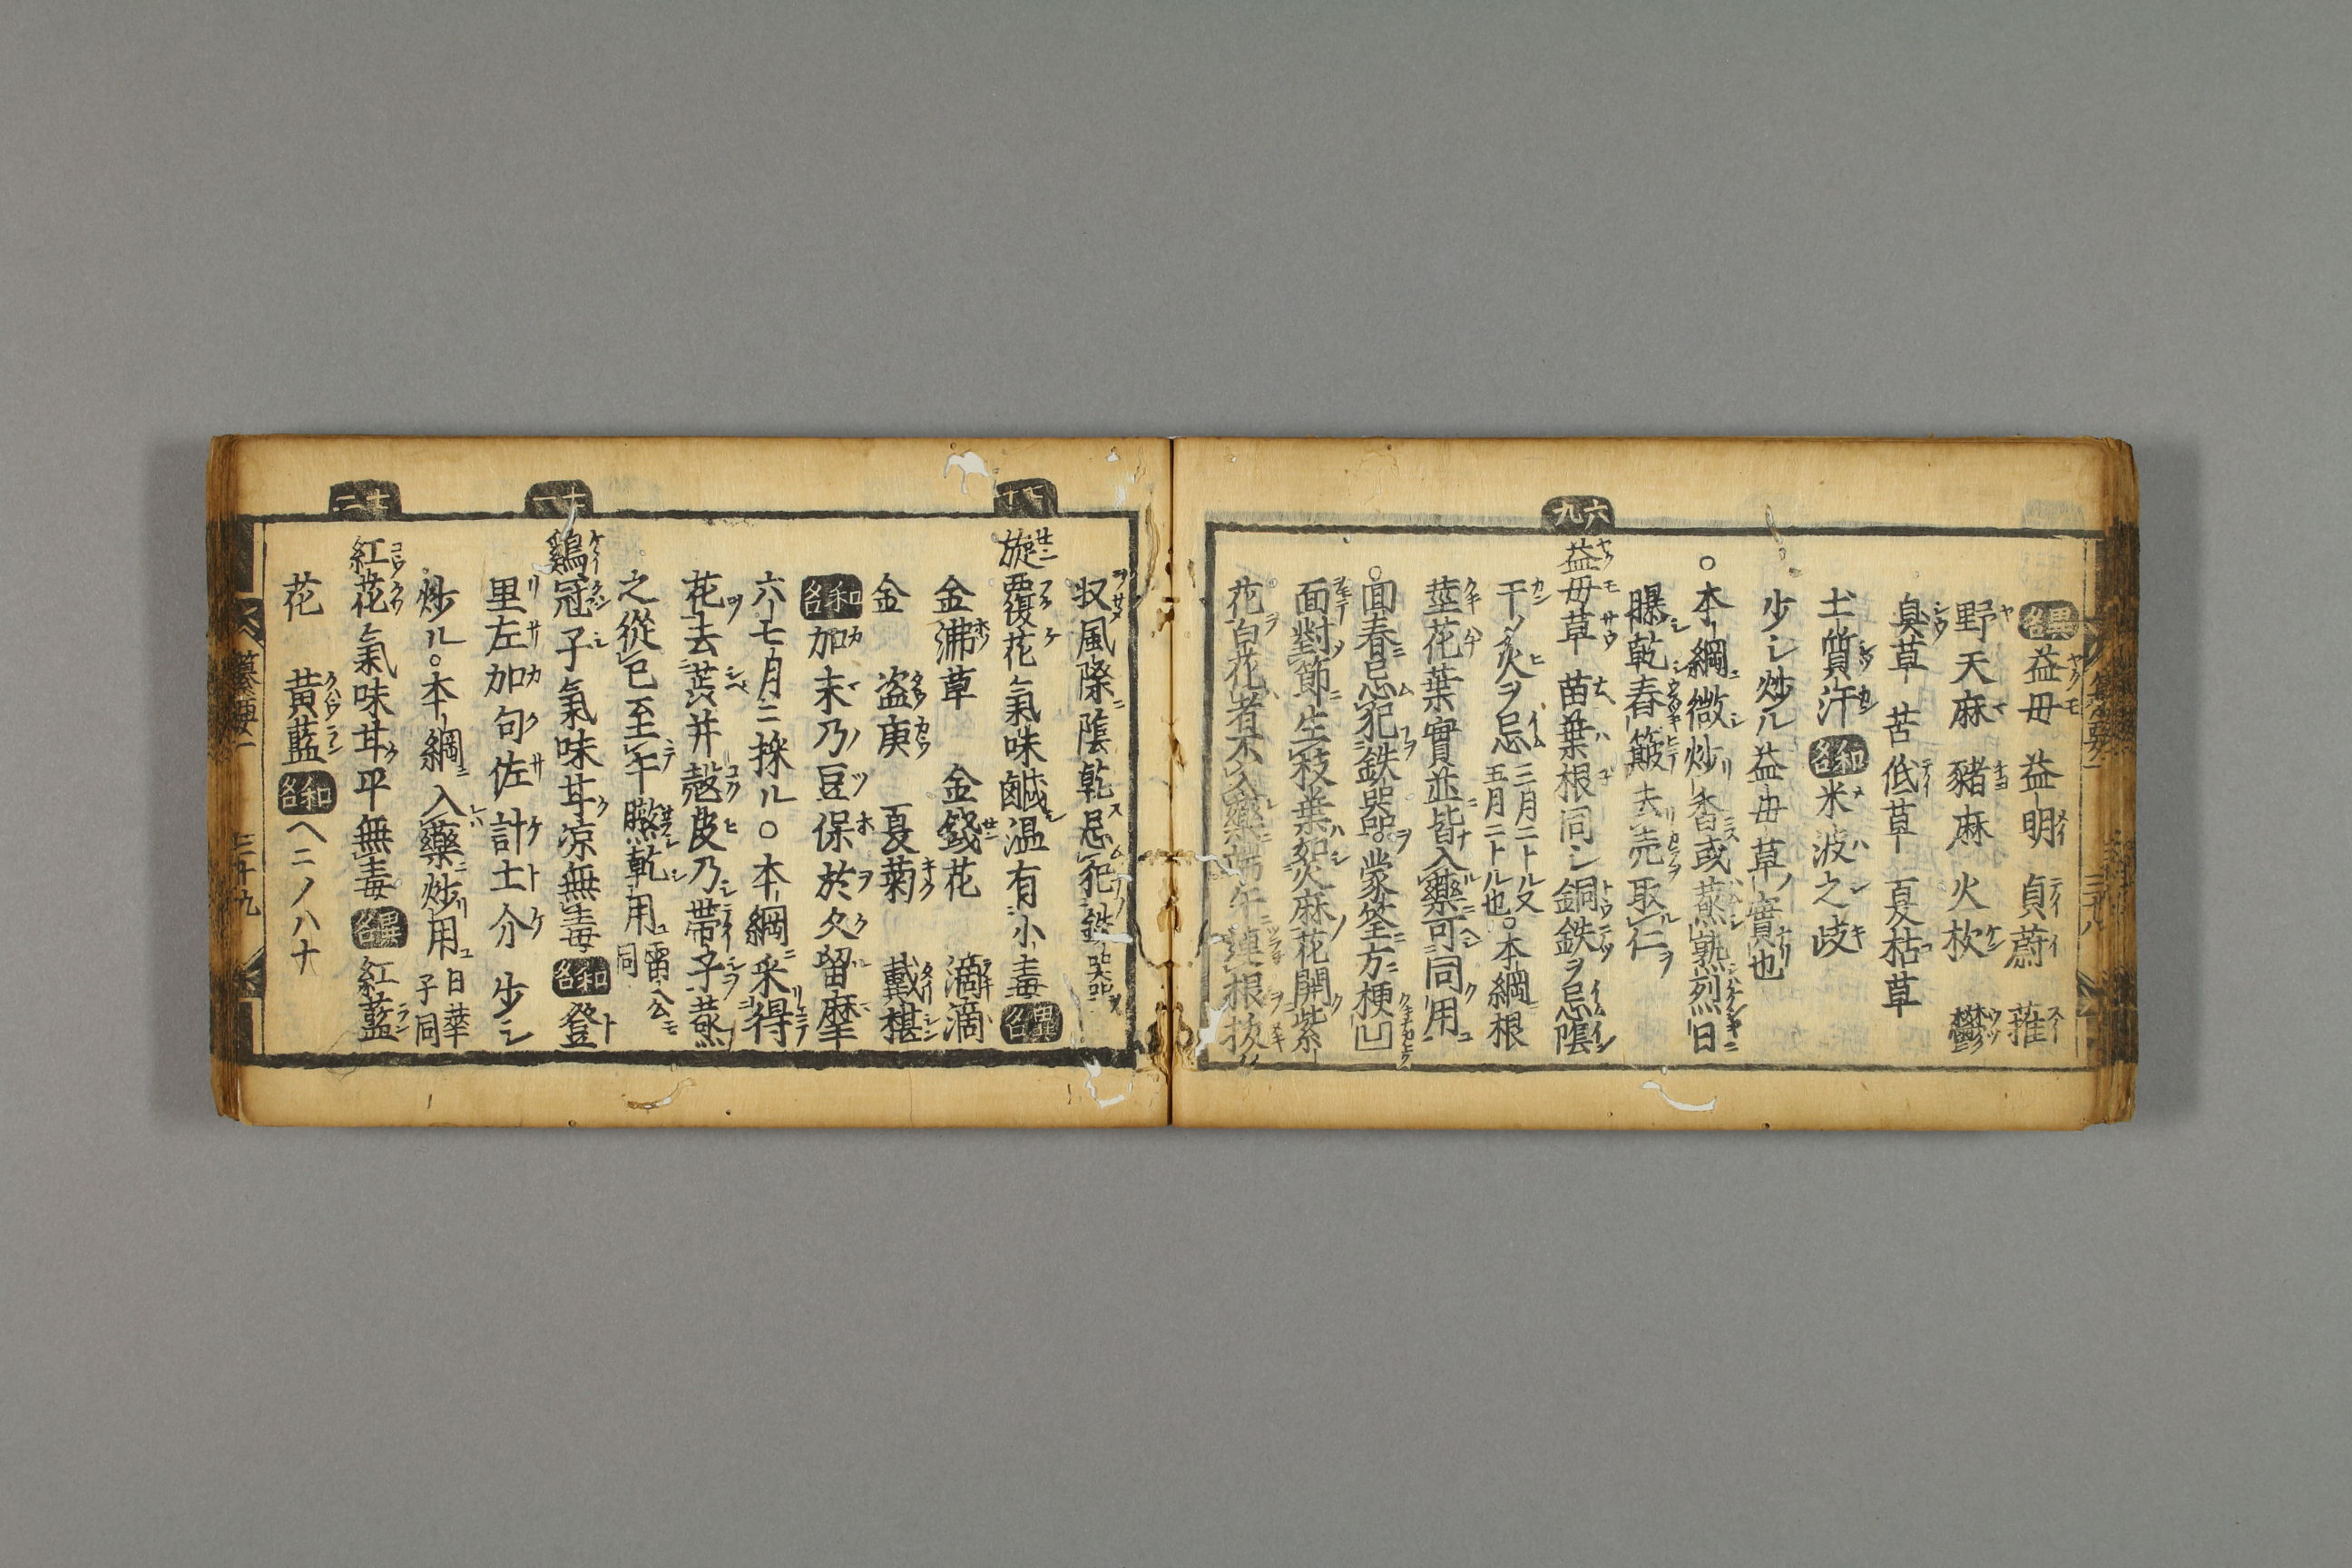 異名 益毋 益明 貞蔚 蓷
野天麻 豬麻 火杴 鬱
臭草 苦低草 夏枯草
土質汗 和名 米波之岐
少シ炒ル益毋草ノ實也
○本綱微炒香或蒸熟烈日
曝乾舂簸去壳取仁
六九
益毋草 苗葉根同シ銅鉄ヲ忌陰
干ノ火ヲ忌 三月ニトル又五月ニトル也○本綱根
莖花葉實並皆入藥可同用
○面春忌犯鉄器○蒙筌方梗凹
面對節生枝葉如火麻花開紫
花白花者不入藥端午連根拔
収風際陰乾忌犯鉄器
七十
旋覆花氣味鹹温有小毒 異名
金沸草 金錢花 滴滴
金 盗庚 夏菊 戴椹
和名 加末乃豆保於久留摩
六七月ニ採ル○本綱采得
花去蕊并殻皮乃帶子蒸
之從巳至午晒乾用 雷公同
七十一
鶏冠子氣味甘凉無毒 和名 登
里左加句佐計土介 少シ
炒ル○本綱入藥炒用 日華子同
七十二
紅花氣味甘平無毒 異名 紅藍
花 黄藍 和名 ヘニノハナ
纂要一 三十九